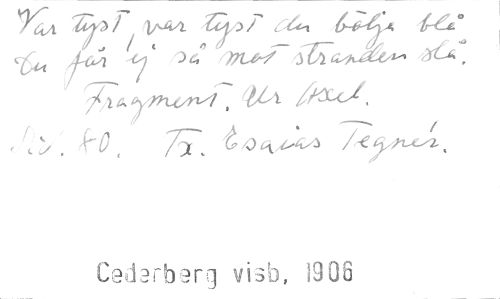 Var tyst, var tyst du bölja blå
Du får ej så mot stranden slå.
Fragment. Ur Axel.
80. Tx. Esaias Tegnér.
Cederberg visb, 1906